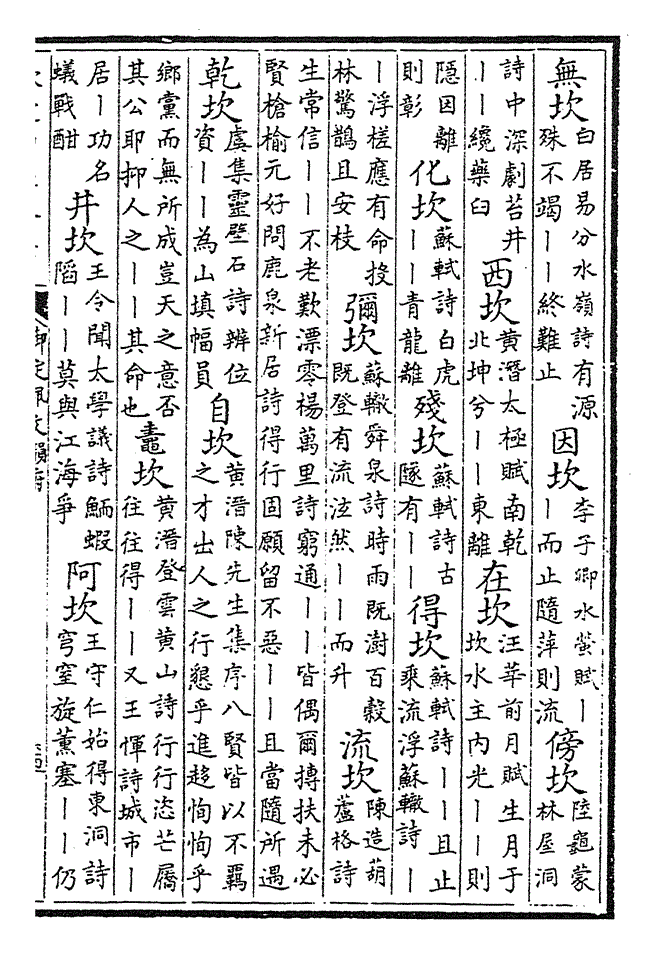 無坎白居易分水嶺詩有源殊不竭丨丨終難止因坎李子卿水螢賦丨丨而止隨萍則流傍坎陸龜蒙林屋洞
詩中深劇苔井丨丨纔藥臼西坎黄潛太極賦南乾北坤兮丨丨東離在坎汪莘前月賦生月于坎水主内光丨丨則
隱因離則彰化坎蘇軾詩白虎丨丨青龍離殘坎蘇軾詩古隧有丨丨得坎蘇軾詩丨丨且止乘流浮蘇轍詩丨
丨浮槎應有命投林驚鵲且安枝彌坎蘇轍舜泉詩時雨既澍百糓既登有流泫然丨丨而升流坎陳造葫蘆格詩
生常信丨丨不老歎漂零楊萬里詩窮通丨丨皆偶爾摶扶未必賢槍榆元好問鹿泉新居詩得行固願留不惡丨丨且當隨所遇
乾坎虞集靈壁石詩辨位資丨丨為山填幅員自坎黄溍陳先生集序八賢皆以不羈之才出人之行懇乎進趍恂恂乎
鄉黨而無所成豈天之意否其公耶抑人之丨丨其命也鼃坎黄溍登雲黄山詩行行恣芒屩往往得丨丨又王惲詩城市丨
居丨功名蟻戰酣井坎王令聞太學議詩鮞蝦陷丨丨莫與江海爭阿坎王守仁始得東洞詩穹窒旋薰塞丨丨仍